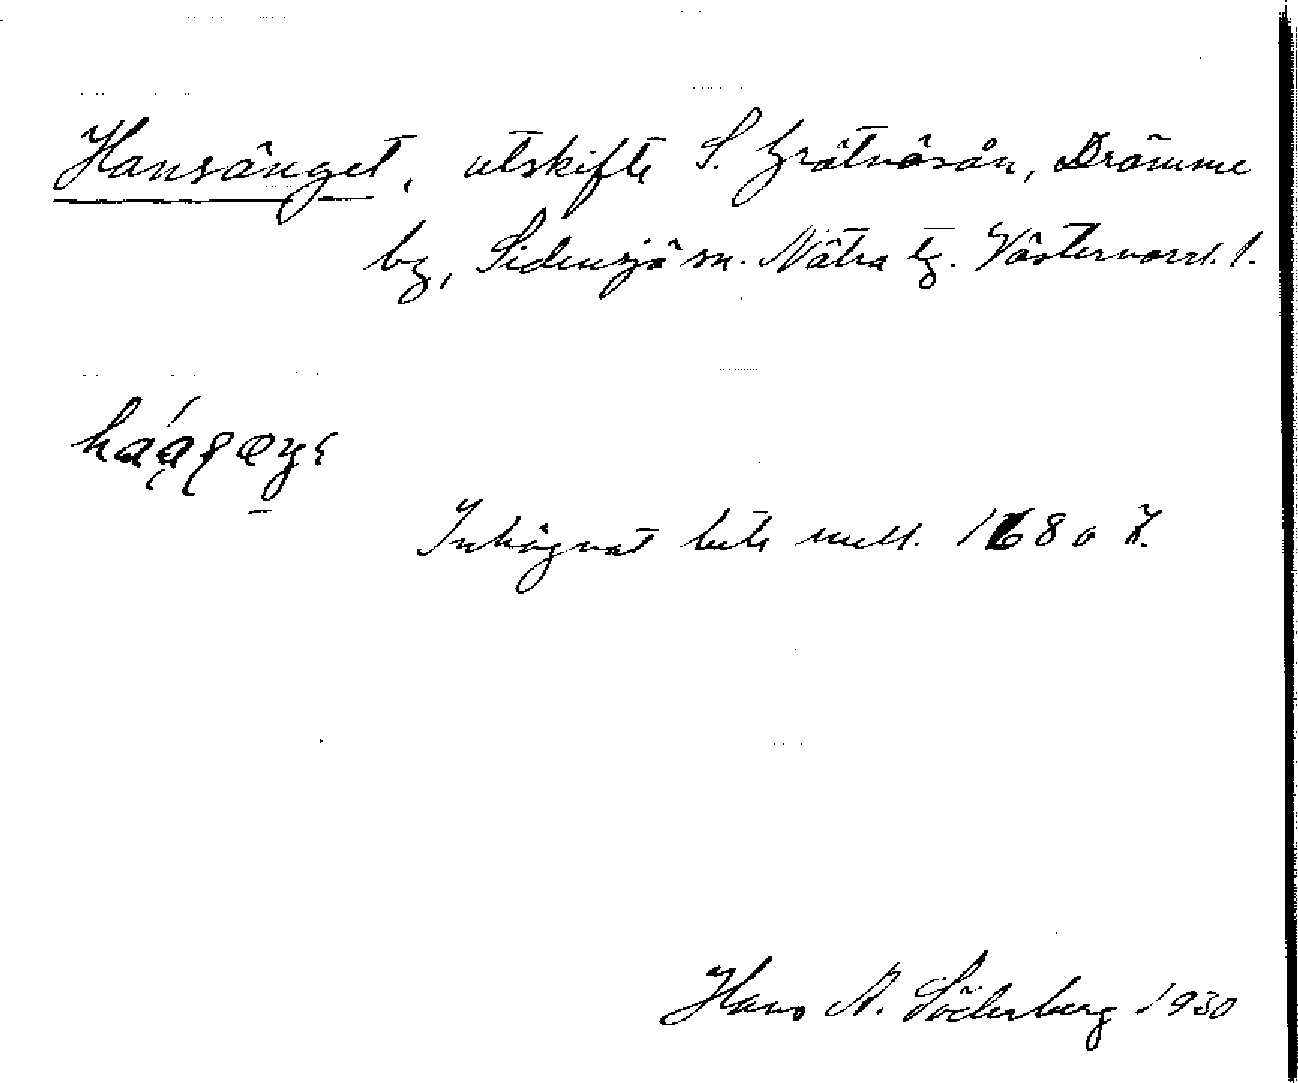 Hansänget, utskifte S. Grätnäsån, Drömme
by, Sidensjö sn. Nätra tg. Västernorrl. l.
Inhägnat bete mell. 168 o 7.
Hans A. Söderberg 1930